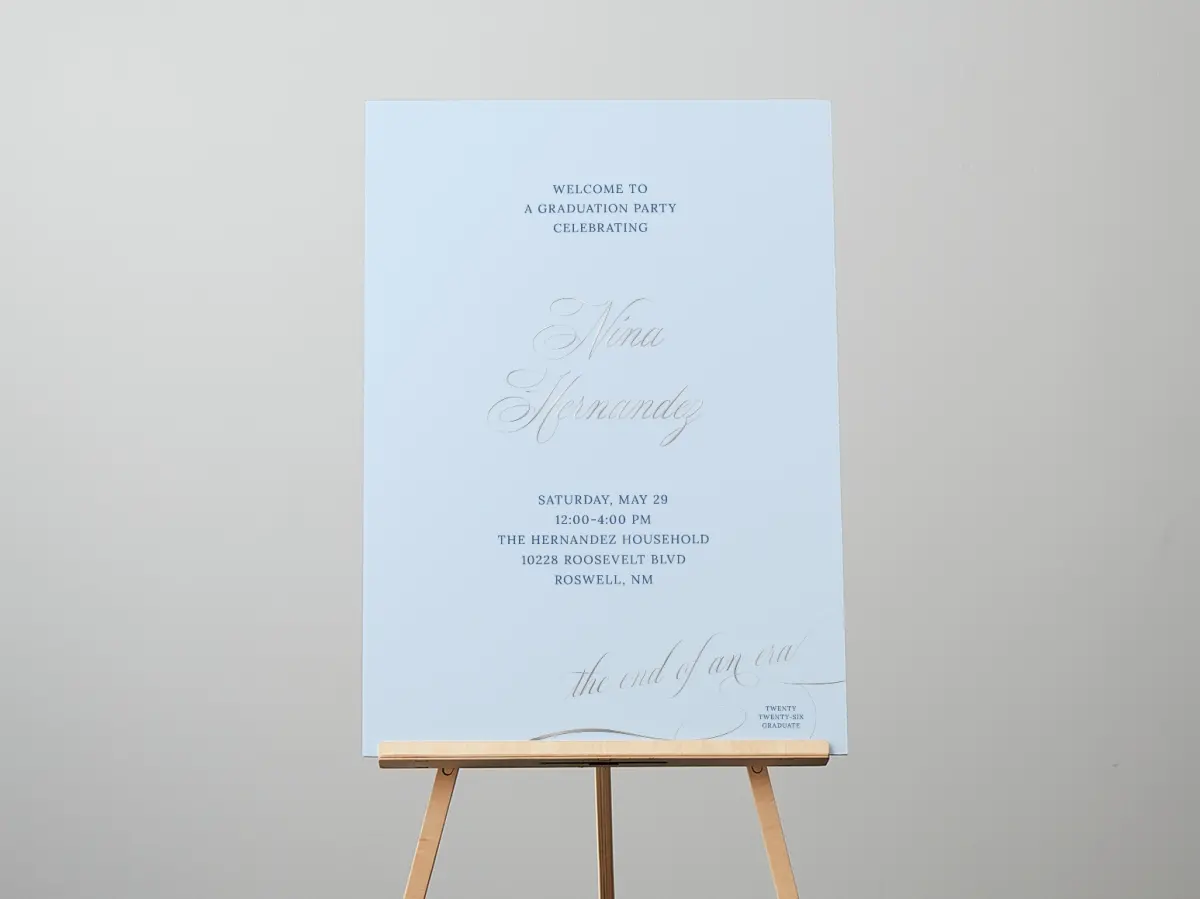 WELCOME TO
A GRADUATION PARTY
CELEBRATING
Nina
Hernandez
SATURDAY, MAY 29
12:00-4:00 PM
THE HERNANDEZ HOUSEHOLD
10228 ROOSEVELT BLVD
ROSWELL, NM
the end of an era
TWENTY
TWENTY-SIX
GRADUATE